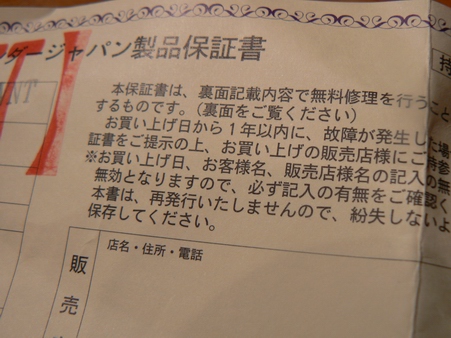 ンダージャパン製品保証書
持
NT
本保証書は、裏面記載内容で無料修理を行うこと
するものです。（裏面をご覧ください）
お買い上げ日から1年以内に、故障が発生した場
証書をご提示の上、お買い上げの販売店様にご持参
※お買い上げ日、お客様名、販売店様名の記入の無
無効となりますので、必ず記入の有無をご確認く
本書は、再発行いたしませんので、紛失しないよ
保存してください。
店名・住所・電話
販売